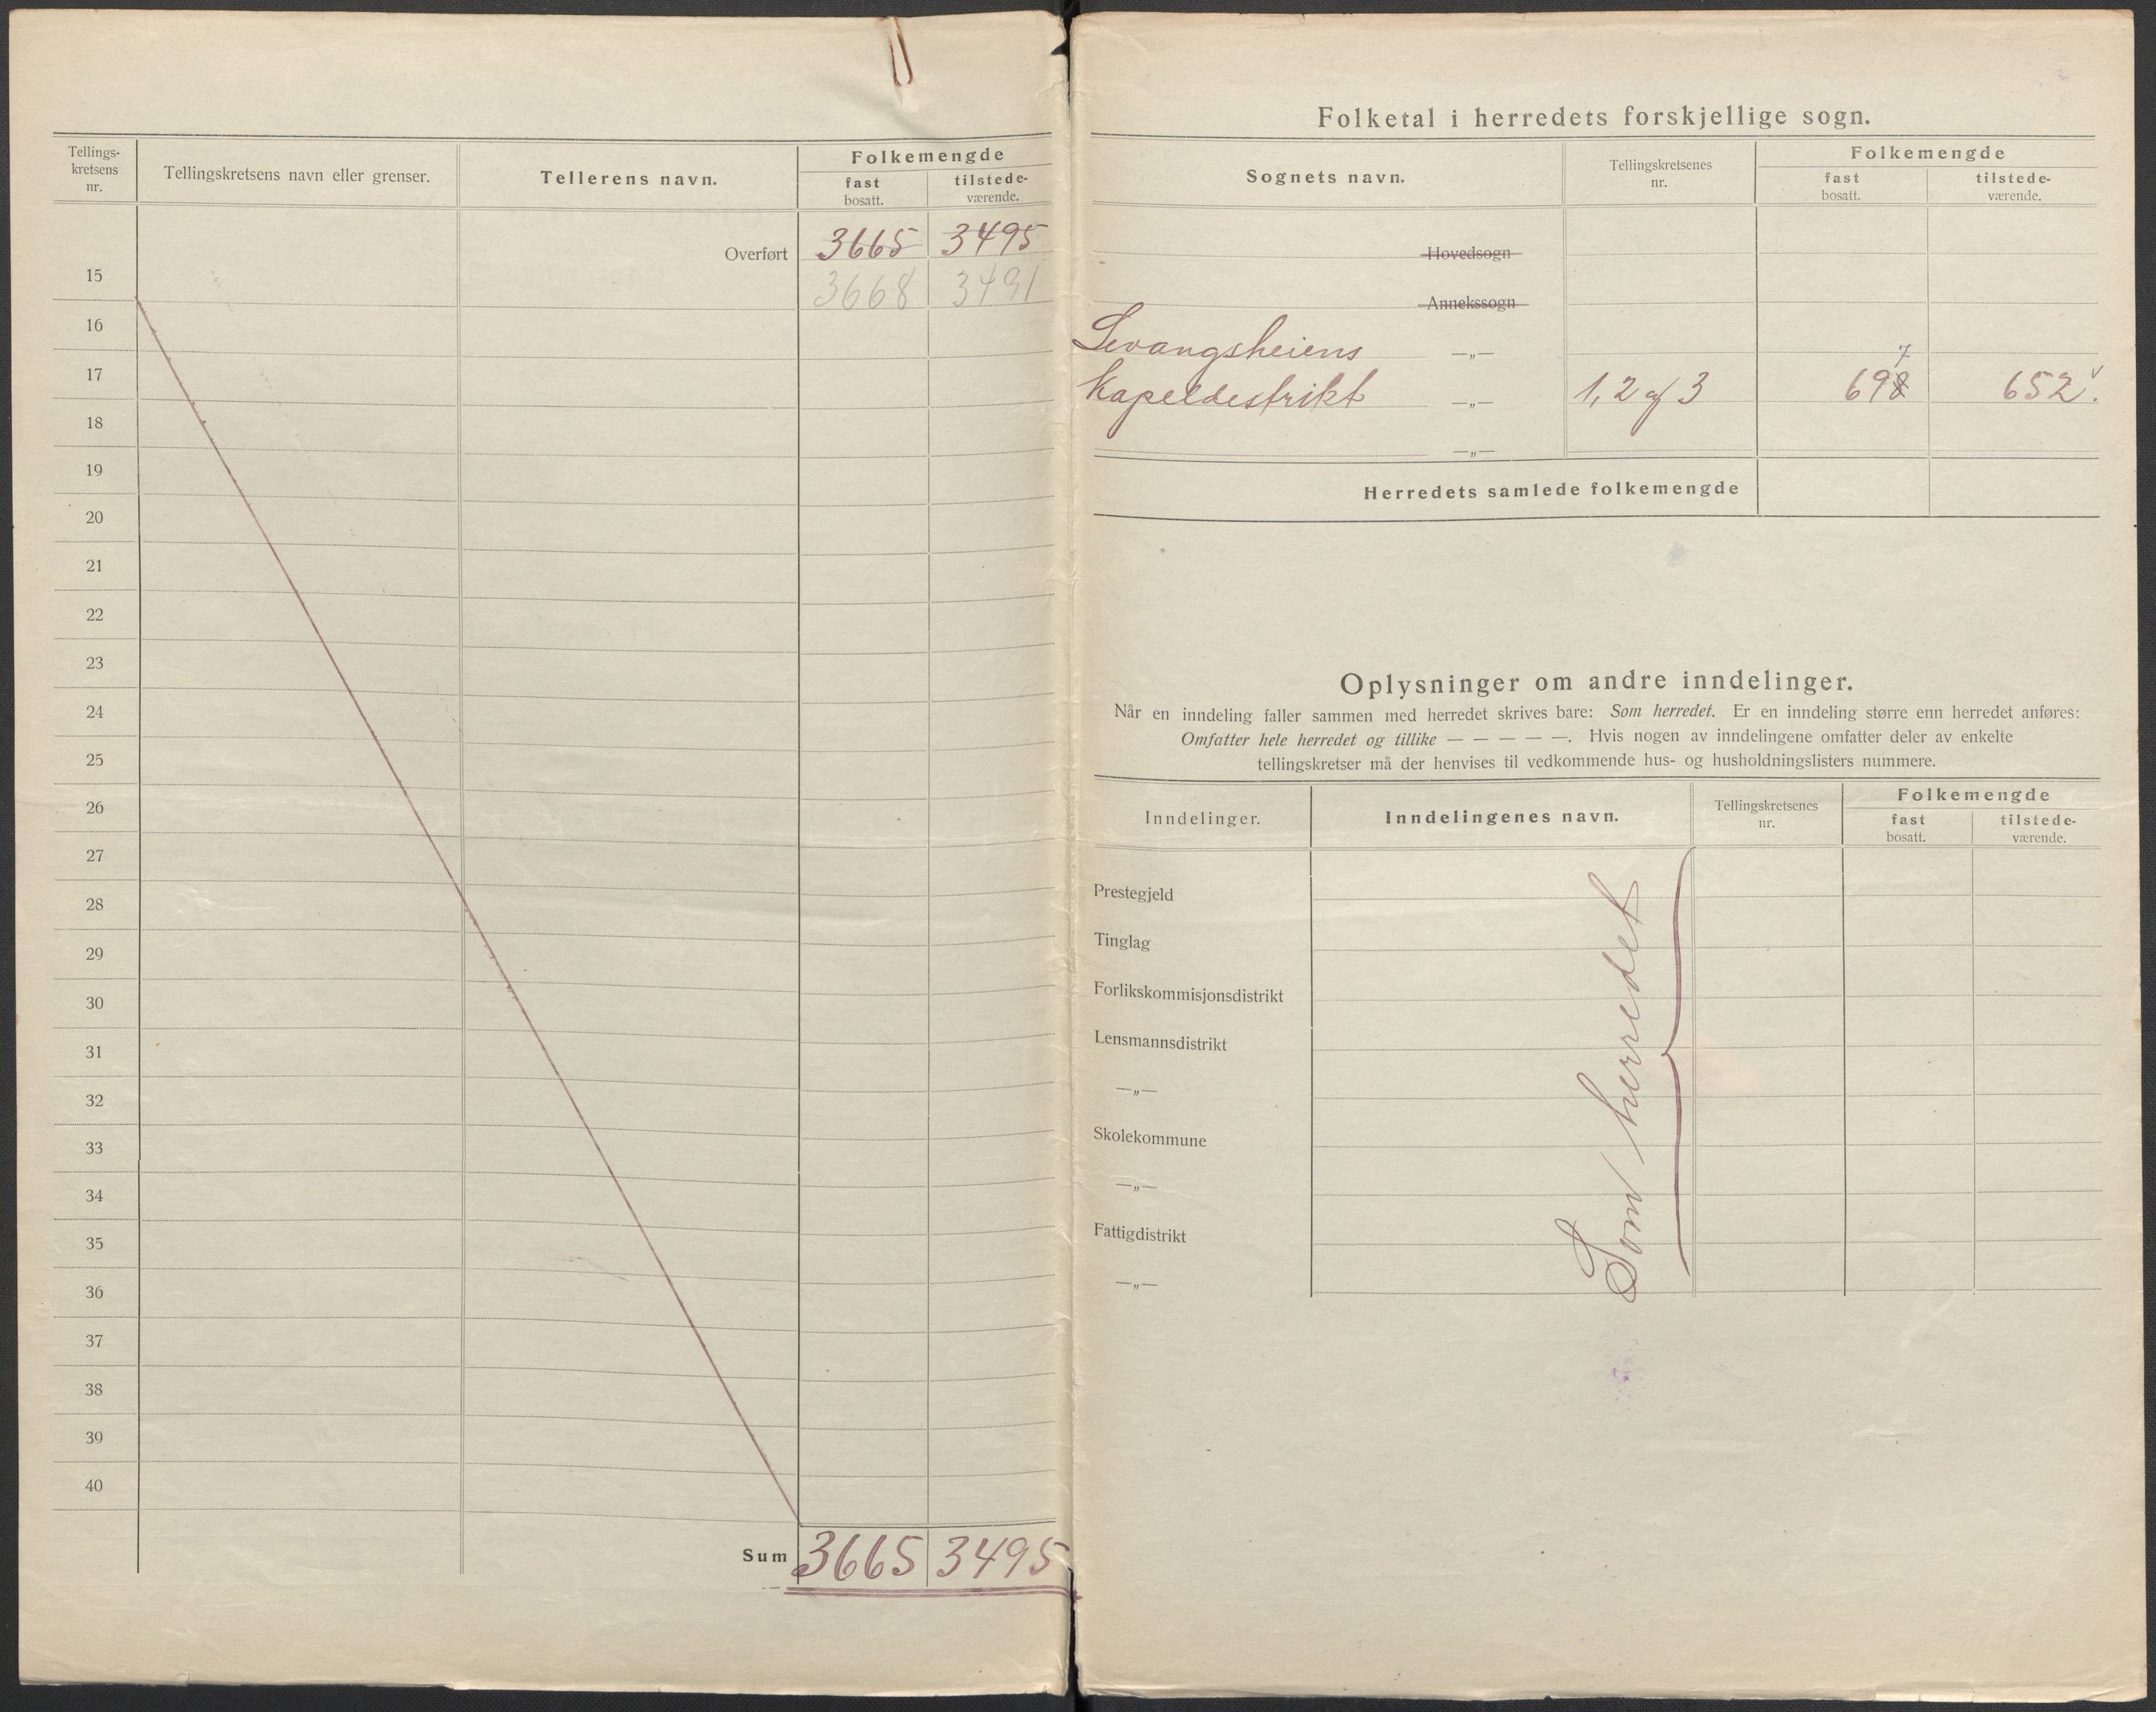 Tellings-
kretsens
nr.
Tellingskretsens navn eller grenser.
Tellerens navn.
Folkemengde
fast
bosatt.
tilstede-
værende.
Overført 3665 3495
15 3668 3491
16
17
18
19
20
21
22
23
24
25
26
27
28
29
30
31
32
33
34
35
36
37
38
39
40
Sum 3665 3495
Folketal i herredets forskjellige sogn.
Sognets navn.
Tellingskretsenes
nr.
Folkemengde
fast
bosatt.
tilstede-
værende.
Hovedsogn
Annekssogn
Levangsheiens —„—
7
Kapeldestrikt —„— 1, 2 og 3 698 652 v.
—„—
Herredets samlede folkemengde
Oplysninger om andre inndelinger.
Når en inndeling faller sammen med herredet skrives bare: Som herredet. Er en inndeling større enn herredet anføres:
Omfatter hele herredet og tillike — — — — —. Hvis nogen av inndelingene omfatter deler av enkelte
tellingskretser må der henvises til vedkommende hus- og husholdningslisters nummere.
Inndelinger.
Inndelingenes navn.
Tellingskretsenes
nr.
Folkemengde
fast
bosatt.
tilstede-
værende.
Prestegjeld
Tinglag
Forlikskommisjonsdistrikt
Lensmannsdistrikt
—„—
Skolekommune
—„—
Fattigdistrikt
—„—
Som herredet